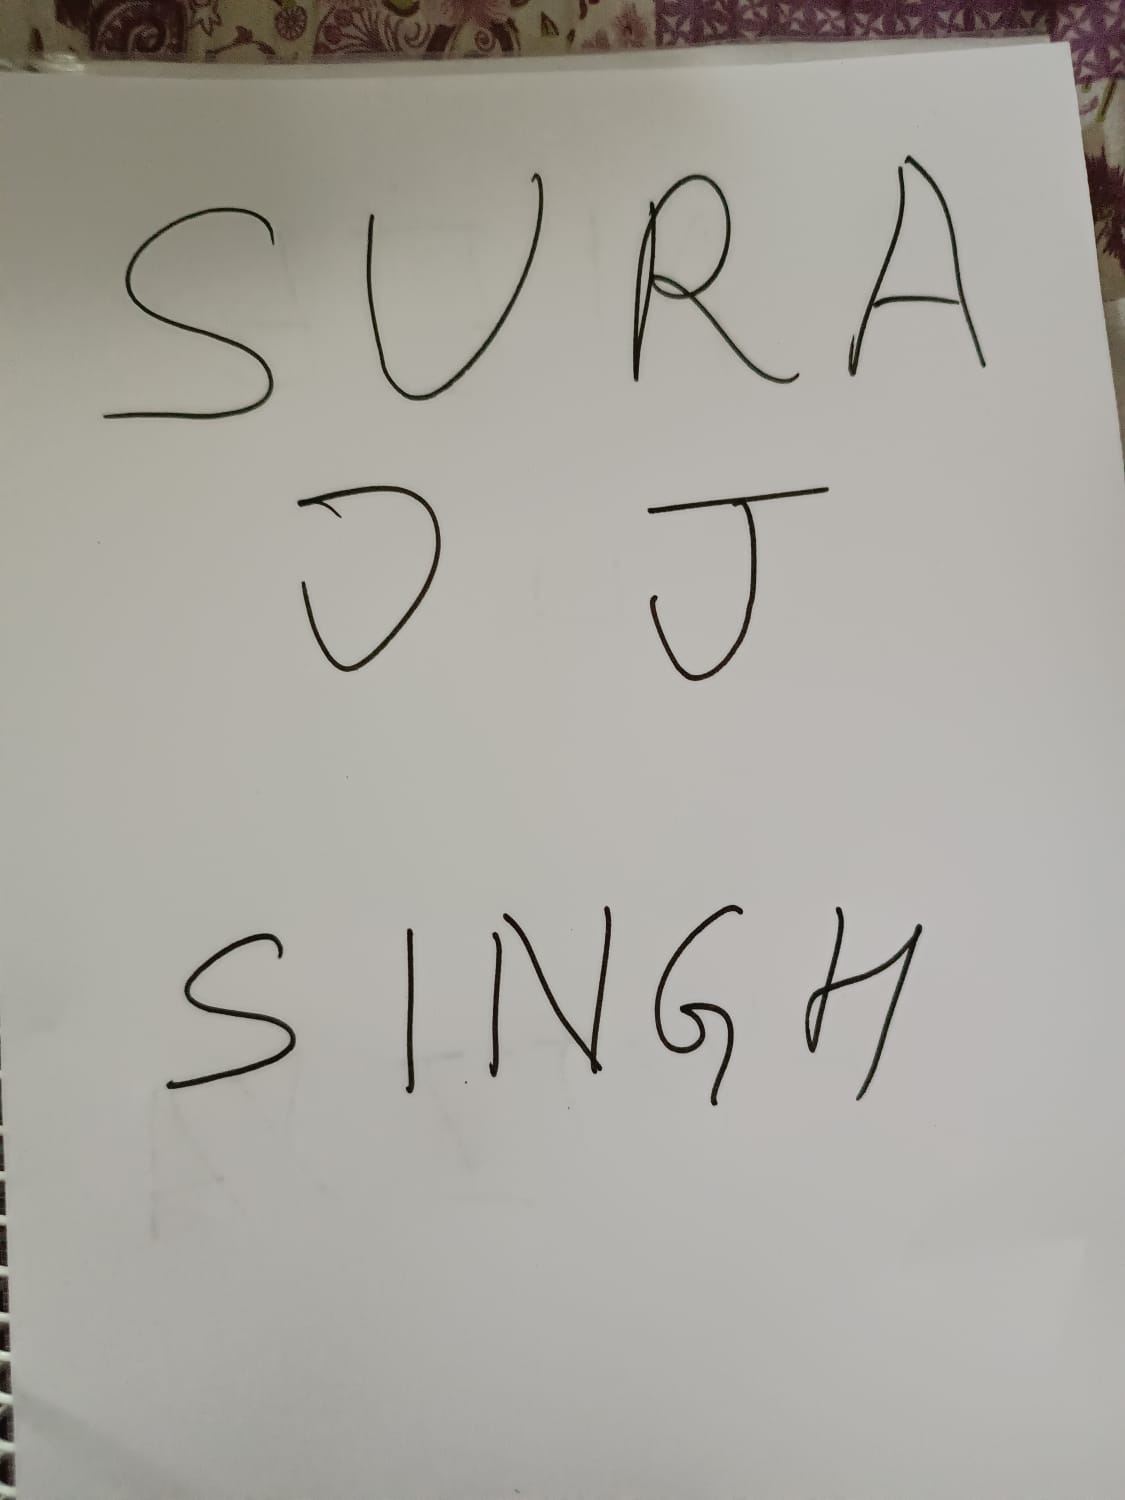 SURA
J J
SINGH